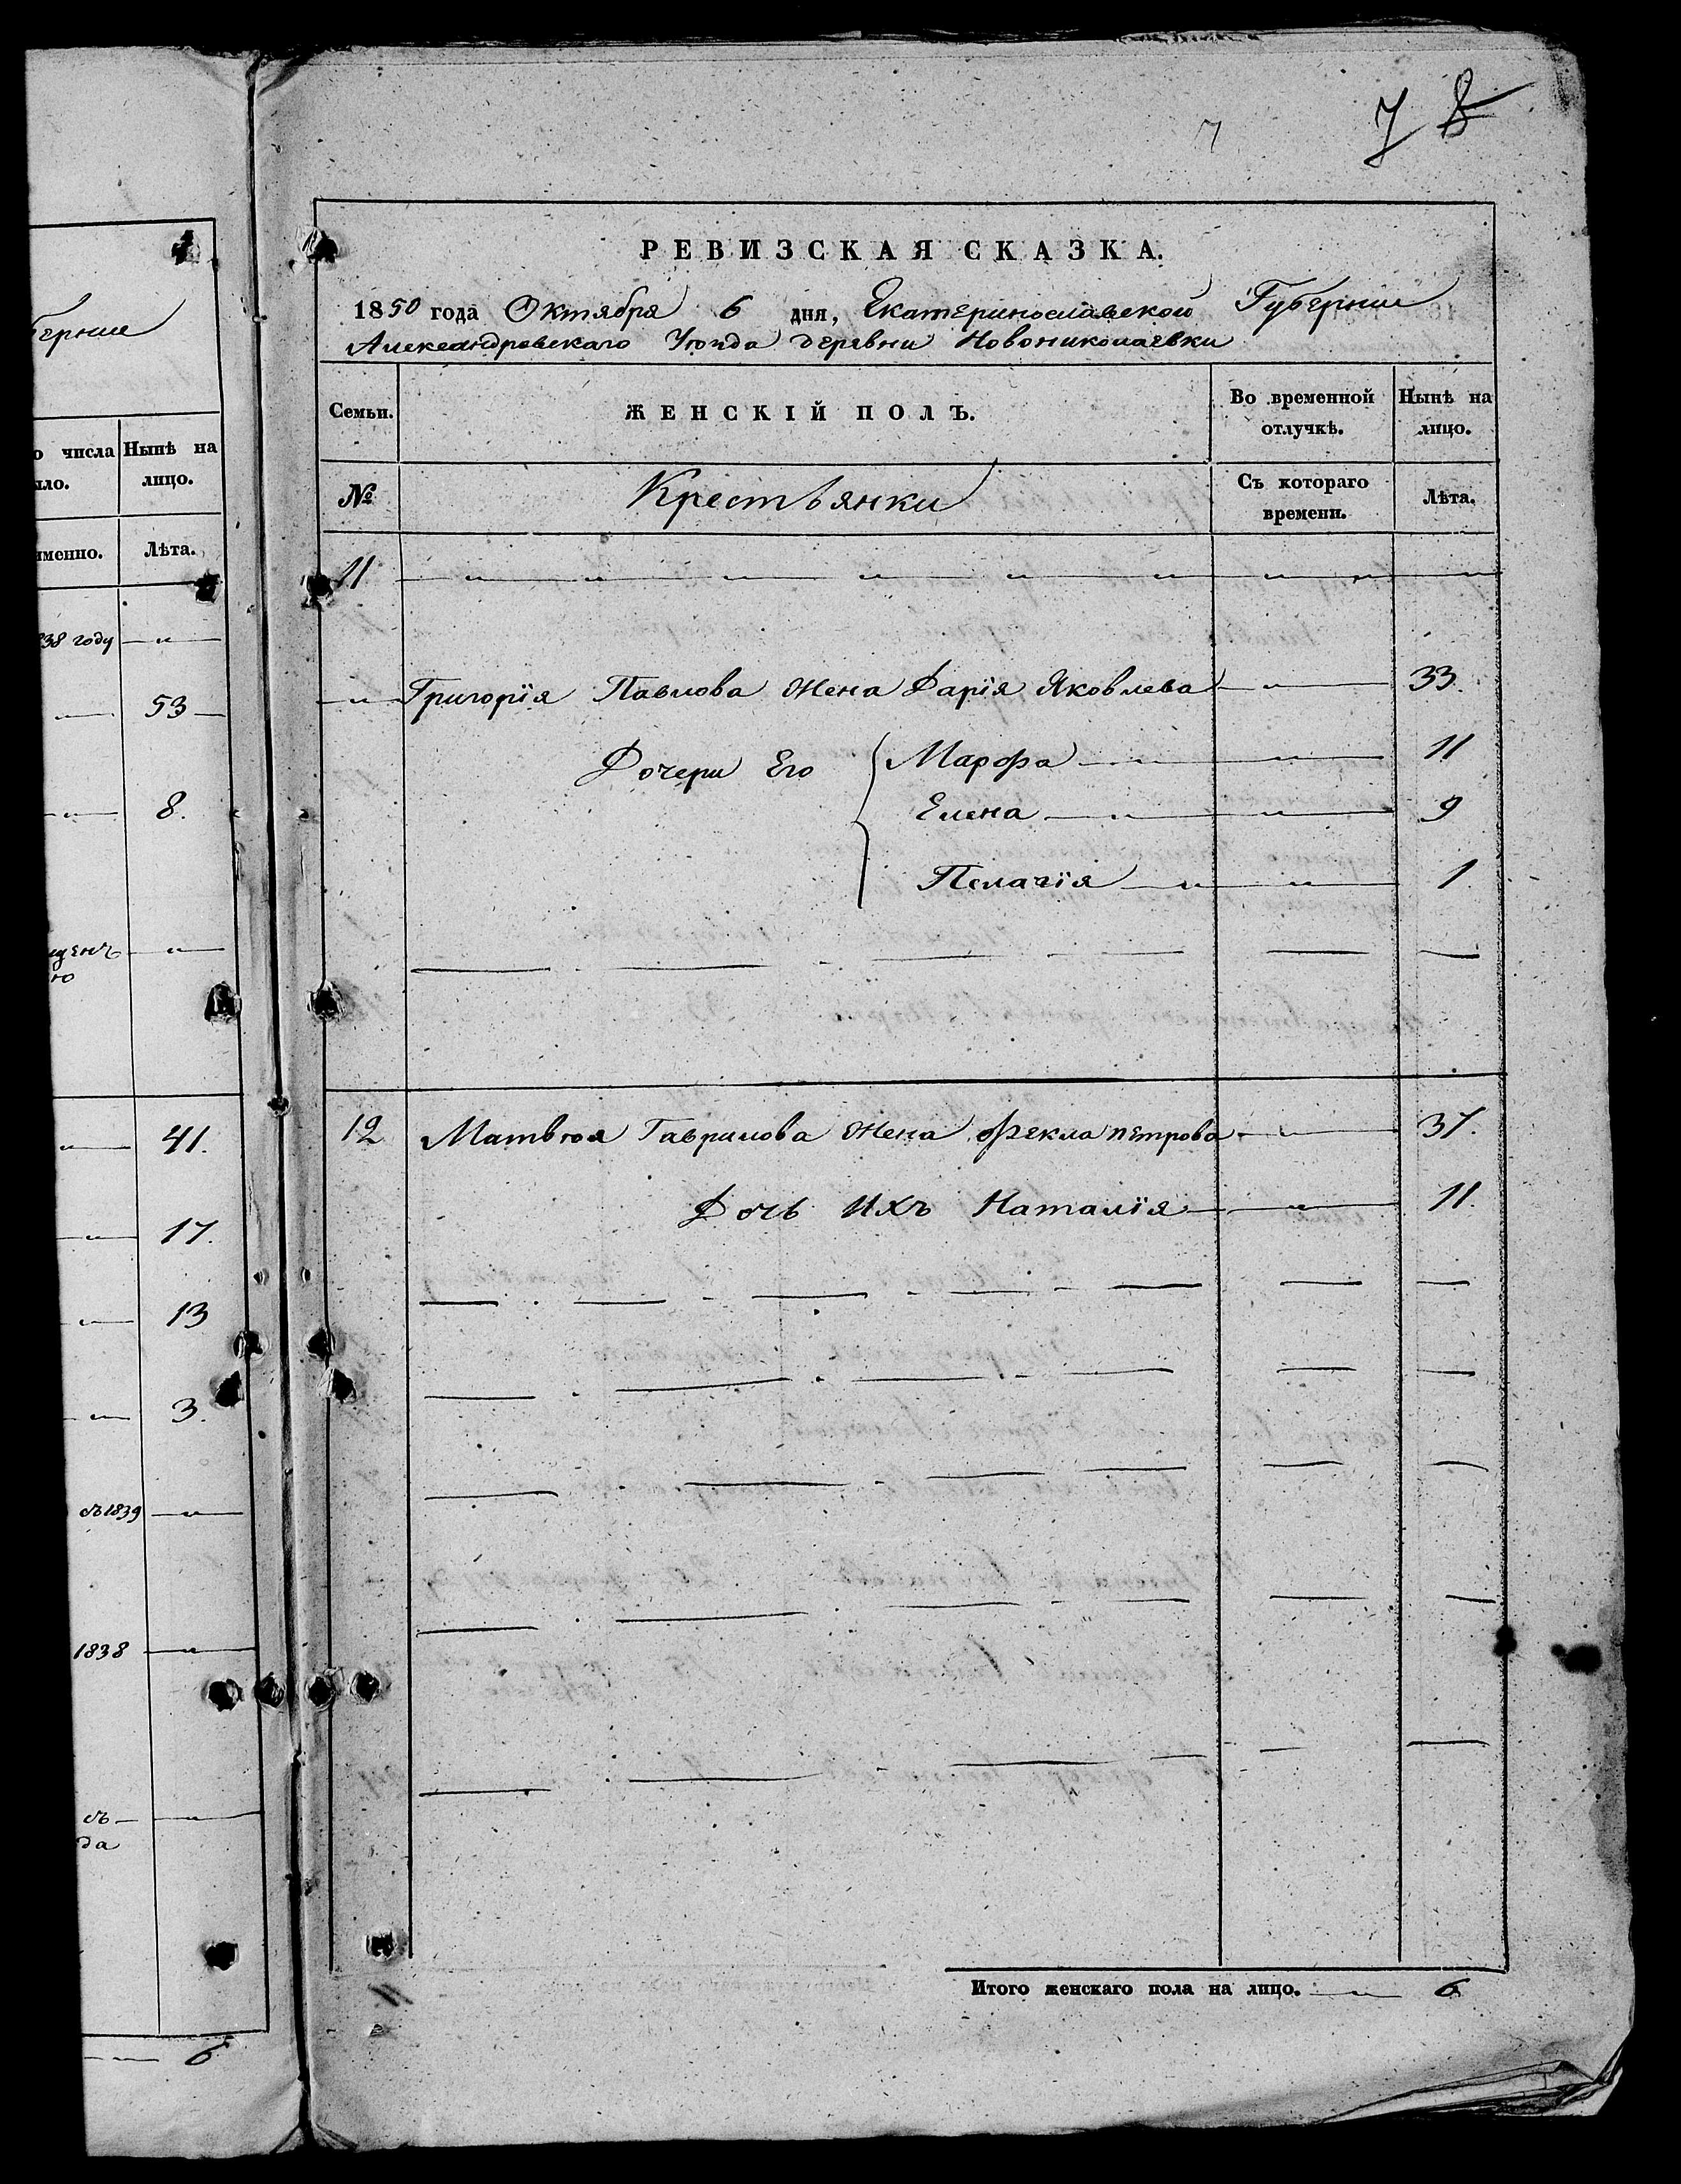 7 8
7
РЕВИЗСКАЯ СКАЗКА.
1850 года Октября 6 дня, Екатеринославской Губернии
Александровскаго Уѣзда деревни Новониколаевки
Семьи. ЖЕНСКІЙ ПОЛЪ. Во временной отлучкѣ. Нынѣ на лицо.
№ Крестьянки Съ котораго времени. Лѣта.
11
Григорія Павлова жена Дарія Яковлева 33.
Дочери Его Марфа 11
Елена 9
Пелагія 1
12 Матвѣя Гаврилова жена Фекла петрова 37.
Дочь ихъ Наталія 11.
Итого женскаго пола на лицо. 6
числа Нынѣ на
лицо.
Лѣта.
838 году
53
8.
41.
17.
13
3.
1839
1838
съ
да
6